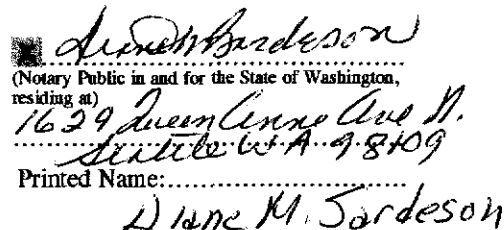 Diane M Sardeson
(Notary Public in and for the State of Washington,
residing at)
1629 Queen Anne Ave N.
Seattle WA 98109
Printed Name:
Diane M. Sardeson